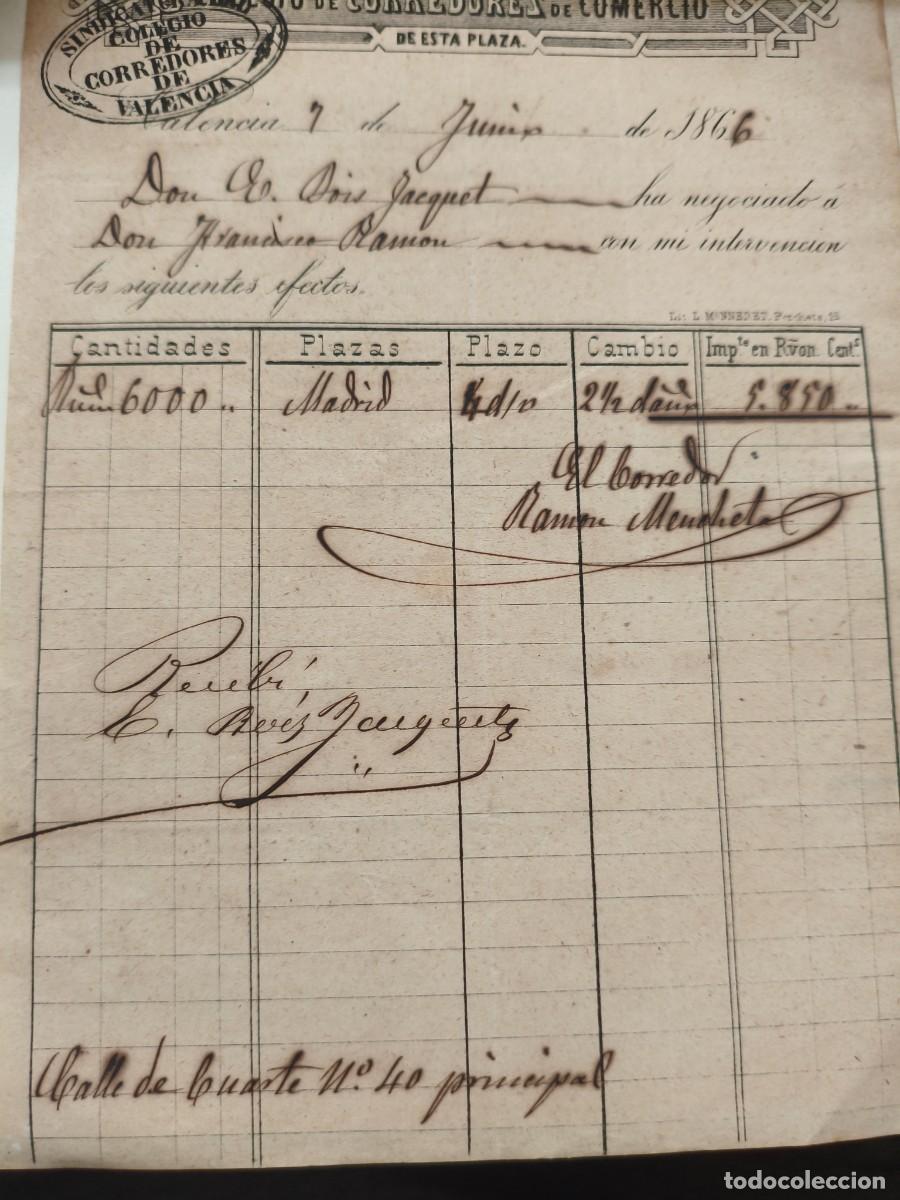 DE CORREDORES DE COMERCIO
DE ESTA PLAZA.
SINDICATURA DEL
COLEGIO
DE
CORREDORES
DE
VALENCIA
Valencia 7 de Junio de 1866
Don E. Bois Jacquet ha negociado á
Don Francisco Ramon con mi intervencion
los siguientes efectos.
Cantidades Plazas Plazo Cambio Imp.te en Rvon. Cent.s
6000 Madrid 4 d/v 2 1/2 5.850
El Corredor
Ramon Mencheta
Recibí,
E. Bois Jacquet
Calle de Cuarte Nº 40 principal
todocoleccion